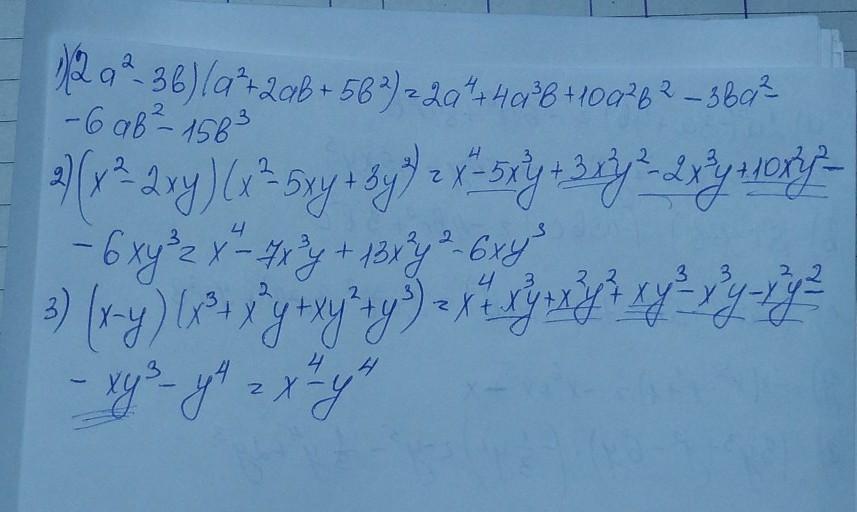 1)(2a² - 3b)(a² + 2ab + 5b²) = 2a⁴ + 4a³b + 10a²b² - 3ba² -
- 6ab² - 15b³
2)(x² - 2xy)(x² - 5xy + 3y²) = x⁴ - 5x³y + 3x²y² - 2x³y + 10x²y² -
- 6xy³ = x⁴ - 7x³y + 13x²y² - 6xy³
3) (x-y)(x³ + x²y + xy² + y³) = x⁴ + x³y + x²y² + xy³ - x³y - x²y² -
- xy³ - y⁴ = x⁴ - y⁴